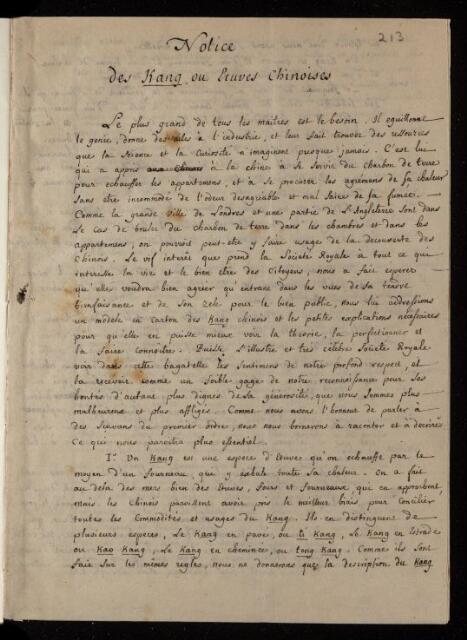 213
Notice
des Kang ou Etuves Chinoises
Le plus grand de tous les maitres est le besoin. Il eguillonne
le genie, donne des ailes à l'industrie, et leur fait trouver des ressources
que la science et la curiosité n'imaginent presque jamais. C'est lui
qui a appris à la chine à se servir du charbon de terre
pour echauffer les appartemens, et à se procurer les agrémens de sa chaleur
sans être incommodé de l'odeur desagréable et mal saine de sa fumée.
Comme la grande ville de Londres et une partie de l'Angleterre sont dans
le cas de bruler du charbon de terre dans les chambres et dans les
appartemens, on pourroit peut-etre y faire usage de la decouverte des
Chinois. Le vif interêt que prend la Societé Royale à tout ce qui
interesse la vie et le bien etre des Citoyens, nous a fait esperer
qu'elle voudra bien agréer qu'entrans dans les vües de sa tendre
bienfaisance et de son zele pour le bien public, nous lui addressions
un modele en carton des Kang chinois et les petites explications nécessaires
pour qu'elle en puisse mieux voir la théorie, la perfectionner et
la faire connoitre. Puisse l'illustre et très célèbre Societé Royale
voir dans cette bagatelle les sentimens de notre profond respect, et
la recevoir comme un foible gage de notre reconnoissance pour ses
bontés d'autant plus dignes de sa générosité, que nous sommes plus
malheureux et plus affligés. Comme nous avons l'honneur de parler à
des sçavans du premier ordre, nous nous bornerons à raconter et à décrire
ce qui nous paroitra plus essentiel.
1.° Un Kang est une espece d'Etuve qu'on echauffe par le
moyen d'un fourneau, qui y exhale toute sa chaleur. On a fait
au délà des mers bien des Etuves, fours et fourneaux qui en approchent,
mais les Chinois paroissent avoir pris le meilleur biais pour concilier
toutes les Commodités et usages du Kang. Ils en distinguent de
plusieurs especes, le Kang en pavé, ou ti Kang, le Kang en estrade
ou Kao Kang, le Kang en cheminée, ou tong Kang. Comme ils sont
faits sur les mêmes regles, nous ne donnerons que la description du Kang